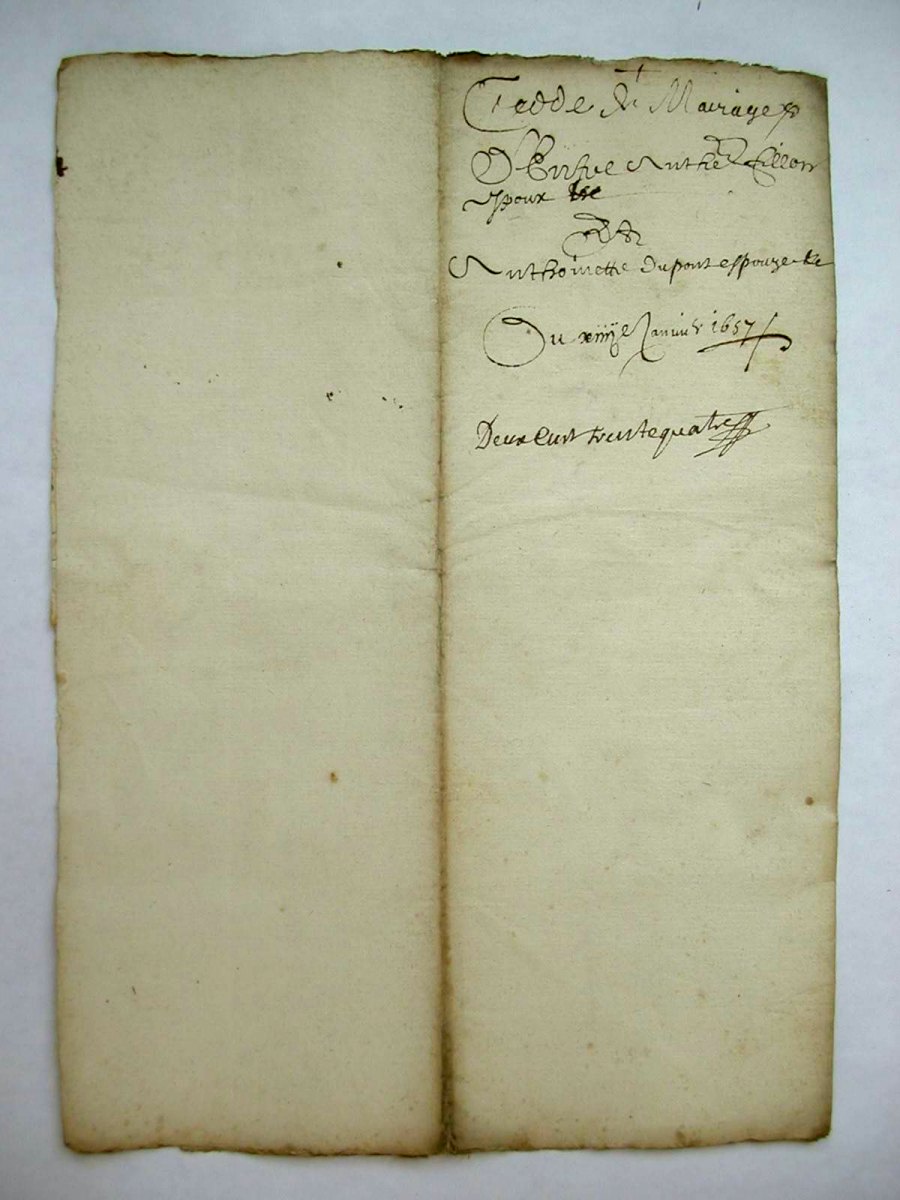 de Mariage
Anthe fillon
espoux
Et
Anthoinette Dupont espouze
Du xiiije Janvier 1657
Deux Cent trente quatre